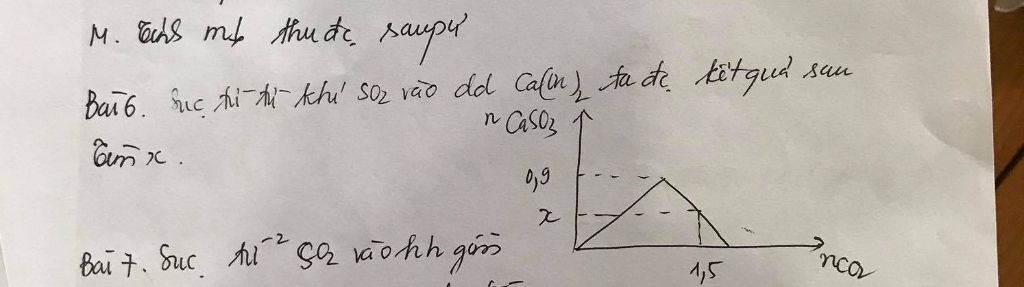 M. Tính mf thu đc sau pư
Bài 6. Sục từ từ khí SO2 vào dd Ca(OH)2 ta đc kết quả sau
Tìm x.
n CaSO3
0,9
x
1,5
nCO2
Bài 7. Sục từ 2 SO2 vào hh gồm